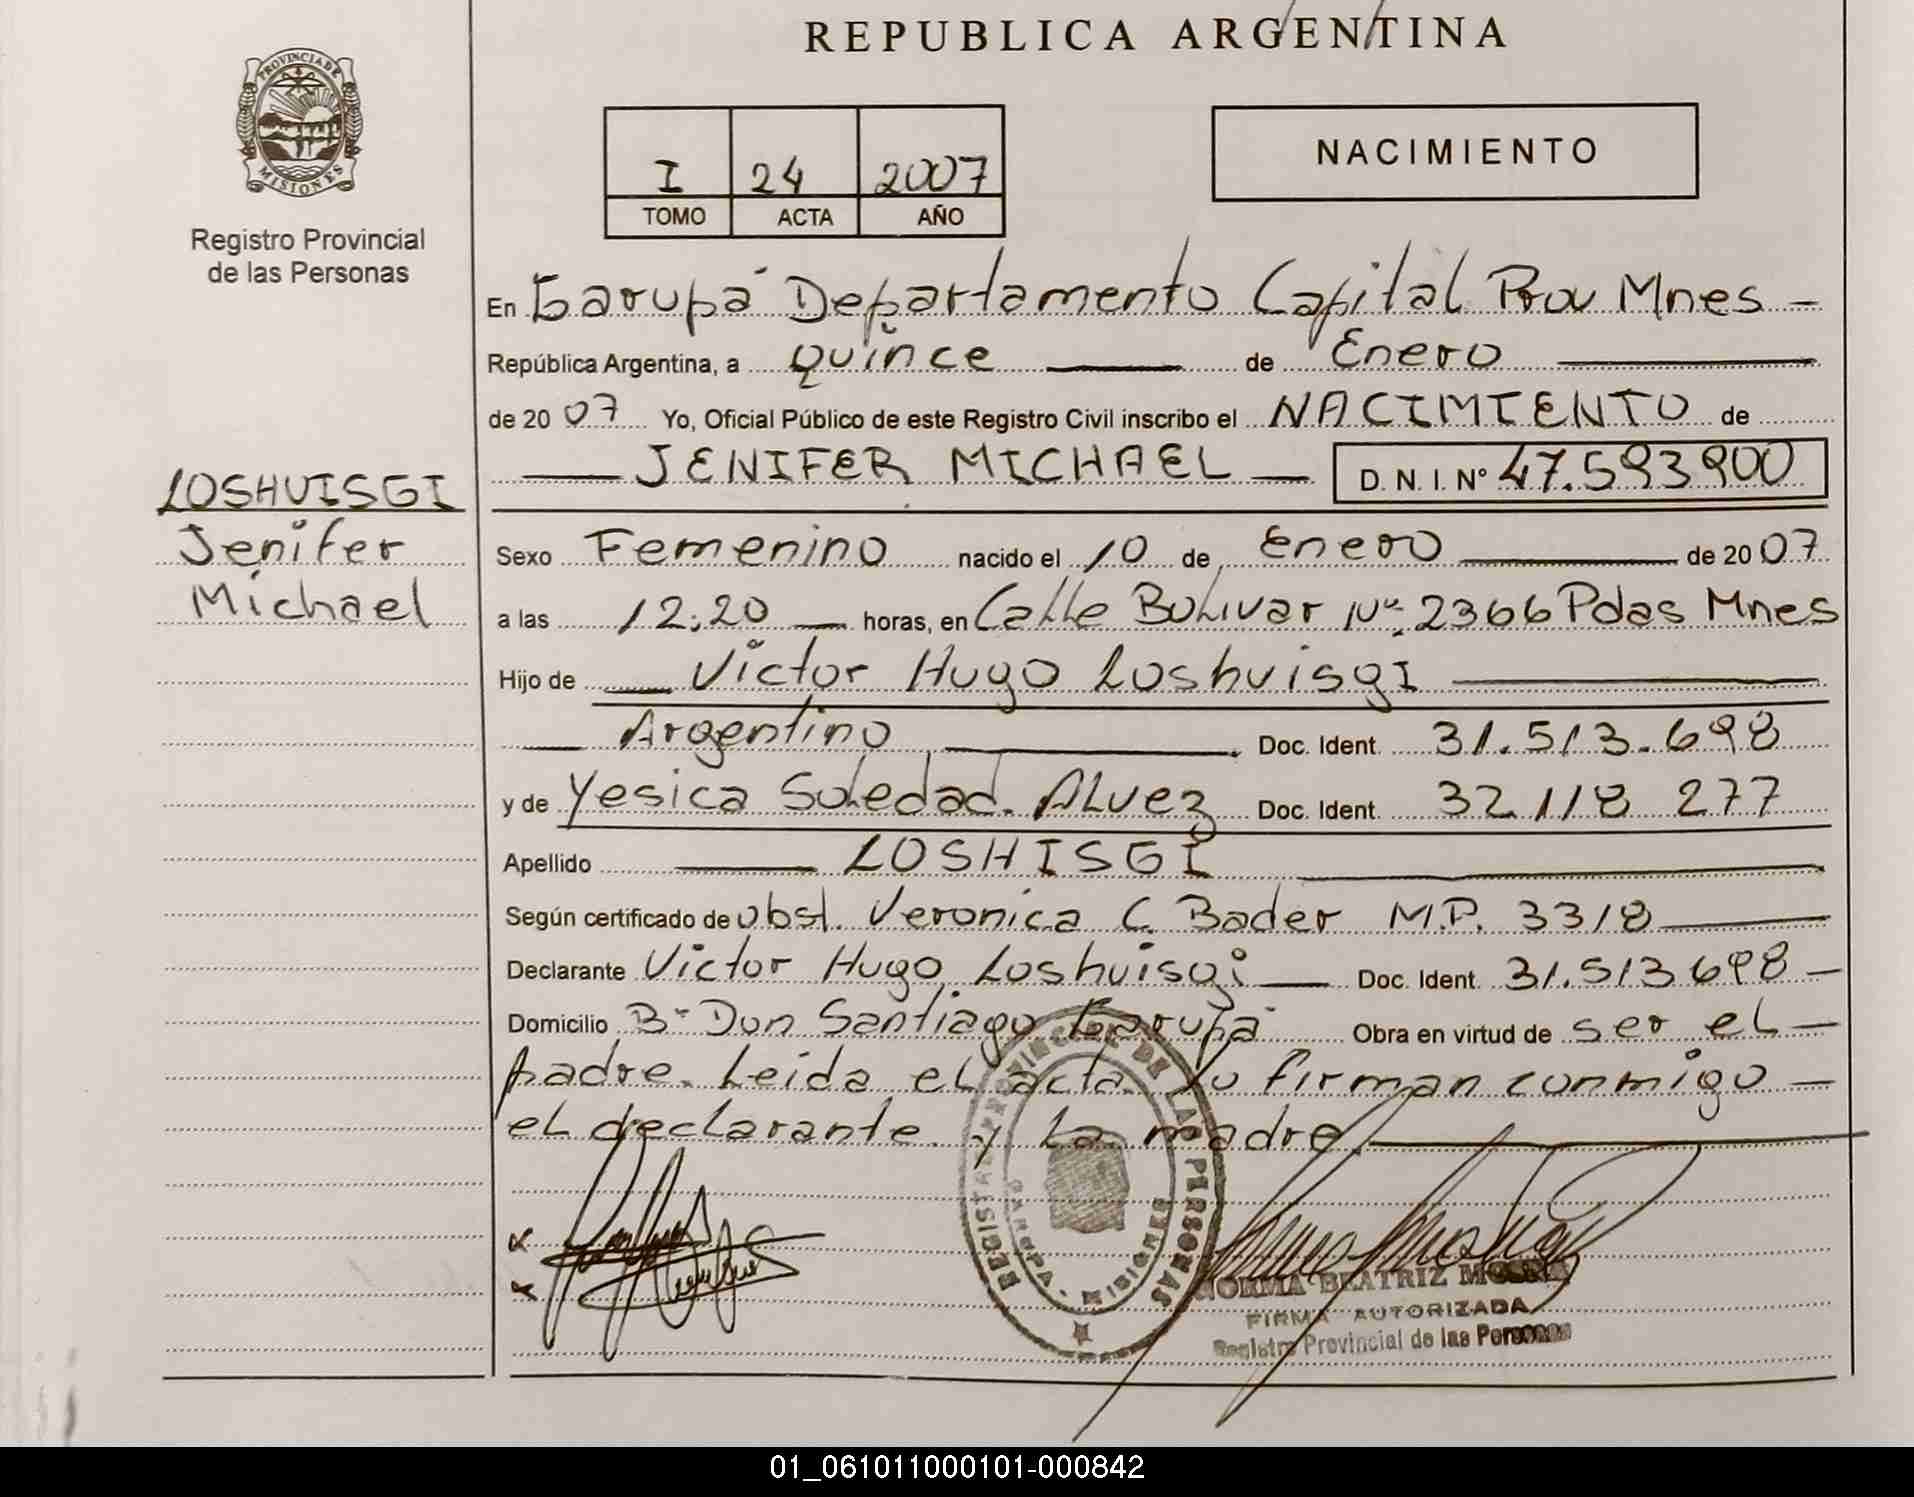 REPUBLICA ARGENTINA
PROVINCIA DE
MISIONES
Registro Provincial
de las Personas
I 24 2007
TOMO ACTA AÑO
NACIMIENTO
En Garupá Departamento Capital Prov Mnes
República Argentina, a Quince de Enero
de 2007 Yo, Oficial Público de este Registro Civil inscribo el NACIMIENTO de
JENIFER MICHAEL D. N. I. N° 47.593900
LOSHUISGI
Jenifer
Michael
Sexo Femenino nacido el 10 de Enero de 2007
a las 12:20 horas, en Calle Bolivar N°: 2366 Pdas Mnes
Hijo de Victor Hugo Loshuisgi
Argentino Doc. Ident. 31.513.698
y de Yesica Soledad Alvez Doc. Ident. 32 118 277
Apellido LOSHISGI
Según certificado de obst. Veronica C. Bader M.P. 3318
Declarante Victor Hugo Loshuisgi Doc. Ident. 31.513.698
Domicilio B° Don Santiago Garupá Obra en virtud de ser el
padre. Leida el acta lo firman conmigo
el declarante y la madre
REGISTRO PROVINCIAL DE LAS PERSONAS
GARUPA - MISIONES
NORMA BEATRIZ
FIRMA AUTORIZADA
Registro Provincial de las Personas
01_061011000101-000842